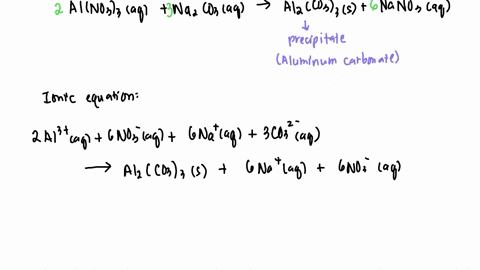 2 Al(NO₃)₃ (aq) + 3Na₂CO₃ (aq) → Al₂(CO₃)₃ (s) + 6NaNO₃ (aq)
↓
precipitate
(Aluminum carbonate)
Ionic equation:
2Al³⁺(aq) + 6NO₃⁻(aq) + 6Na⁺(aq) + 3CO₃²⁻(aq)
→ Al₂(CO₃)₃(s) + 6Na⁺(aq) + 6NO₃⁻ (aq)